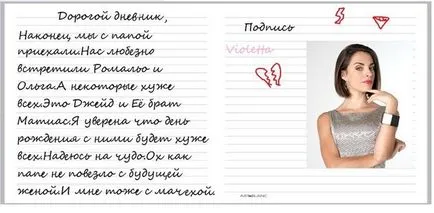 Дорогой дневник,
Наконец, мы с папой
приехали.Нас любезно
встретили Ромальо и
Ольга.А некоторые хуже
всех.Это Джейд и Её брат
Матиас.Я уверена что день
рождения с ними будет хуже
всех.Надеюсь на чудо.Ох как
папе не повезло с будущей
женой.И мне тоже с мачехой.
Подпись
Violetta